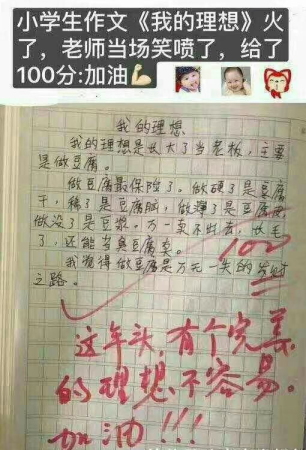 小学生作文《我的理想》火
了，老师当场笑喷了，给了
100分:加油
我的理想
我的理想是长大了当老板，主要
是做豆腐。
做豆腐最保险了。做硬了是豆腐
干，稀了是豆腐脑，做薄了是豆腐
做没了是豆浆。万一卖不出去，长毛
了，还能当臭豆腐卖。
我觉得做豆腐是万无一失的发财
之路。
100
这年头，有个完美
的理想不容易。
加油!!!